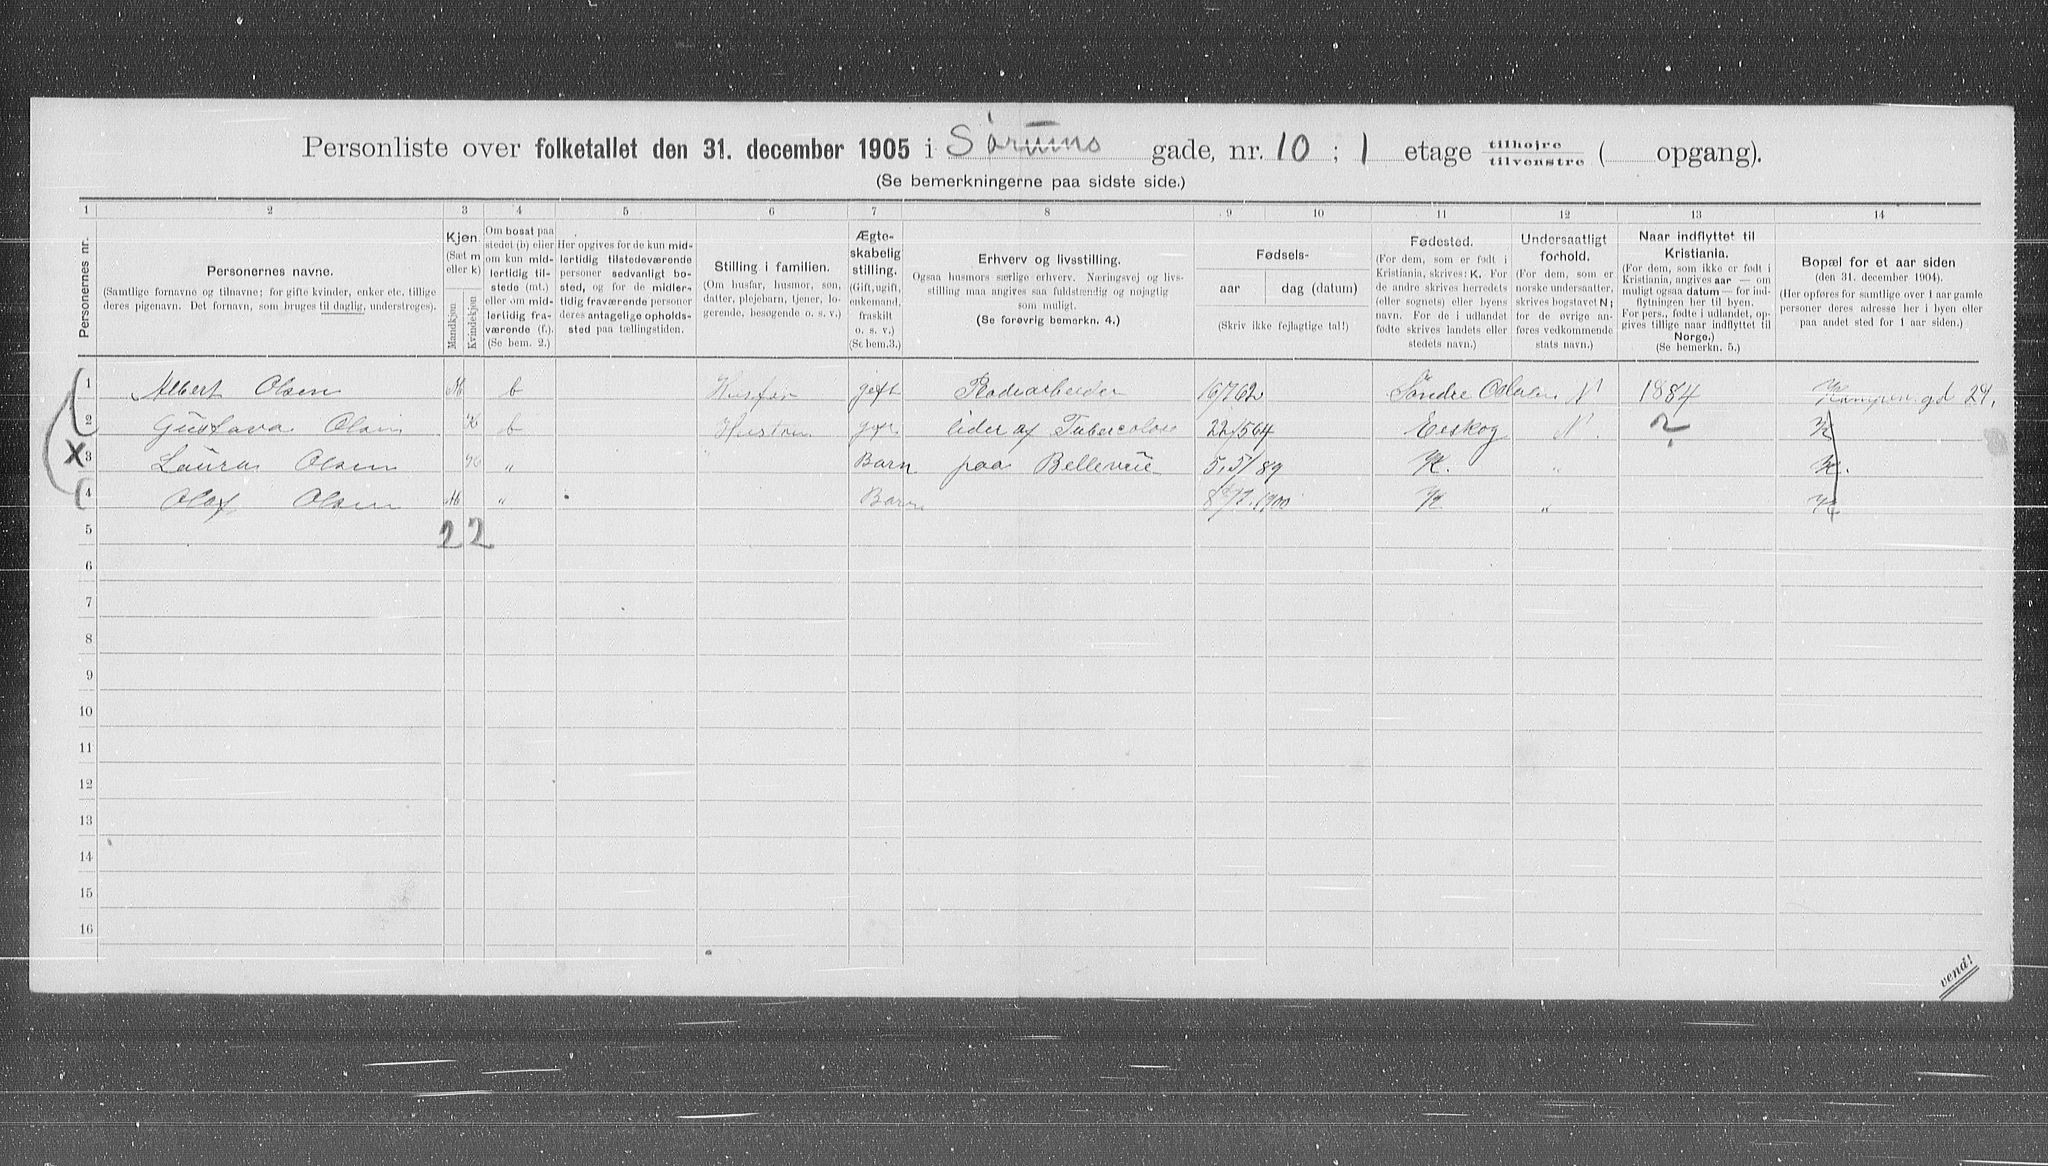 Personliste over folketallet den 31. december 1905 i Sørums gade, nr. 10 ; 1 etage tilhøjre tilvenstre ( opgang).
(Se bemerkningerne paa sidste side.)
1 2 3 4 5 6 7 8 9 10 11 12 13 14
Personernes nr.
Personernes navne.
(Samtlige fornavne og tilnavne; for gifte kvinder, enker etc. tillige deres pigenavn. Det fornavn, som bruges til daglig, understreges).
Kjøn.
(Sæt m eller k)
Mandkjøn
Kvindekjøn
Om bosat paa stedet (b) eller om kun midlertidig tilstede (mt.) eller om midlertidig fraværende (f.). (Se bem. 2.)
Her opgives for de kun midlertidig tilstedeværende personer sedvanligt bosted, og for de midlertidig fraværende personer deres antagelige opholdssted paa tællingstiden.
Stilling i familien.
(Om husfar, husmor, søn, datter, plejebarn, tjener, logerende, besøgende o. s. v.)
Ægteskabelig stilling.
(Gift, ugift, enkemand, fraskilt o. s. v.)
(Se bem.3.)
Erhverv og livsstilling.
Ogsaa husmors særlige erhverv. Næringsvej og livsstilling maa angives saa fuldstændig og nøjagtig som muligt.
(Se forøvrig bemerkn. 4.)
Fødsels-
aar dag (datum)
(Skriv ikke fejlagtige tal!)
Fødested.
(For dem, som er født i Kristiania, skrives: K. For de andre skrives herredets (eller sognets) eller byens navn. For de i udlandet fødte skrives landets eller stedets navn.)
Undersaatligt forhold.
(For dem, som er norske undersaatter, skrives bogstavet N; for de øvrige anføres vedkommende stats navn.)
Naar indflyttet til Kristiania.
(For dem, som ikke er født i Kristiania, angives aar — om muligt ogsaa datum — for indflytningen her til byen. For pers., fødte i udlandet, opgives tillige naar indflyttet til Norge.)
(Se bemerkn. 5.)
Bopæl for et aar siden
(den 31. december 1904).
(Her opføres for samtlige over 1 aar gamle personer deres adresse her i byen eller paa andet sted for 1 aar siden.)
1 Albert Olsen M b Husfar gift 16/7 62 Søndre N 1884 Kampen. gd 24,
2 Gustava Olsen K b Hustru gift lider af Tubercolose 22/5 64 Eeskog N. ? K
X 3 Laura Olsen K „ Barn paa Bellevue 5/5/89 K. „ K.
4 Olaf Olsen M „ Barn 1900 K „ K
2 2
5
6
7
8
9
10
11
12
13
14
15
16
vend!